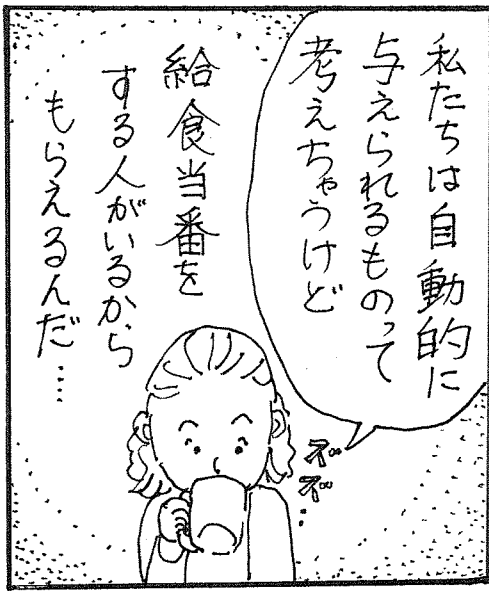 私たちは自動的に
与えられるものって
考えちゃうけど
給食当番を
する人がいるから
もらえるんだ…
ズズ…